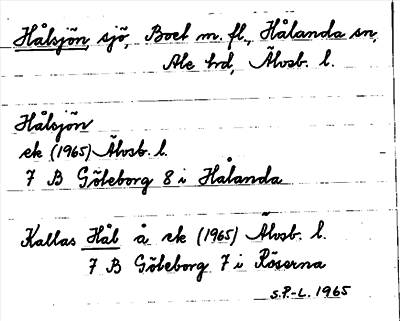 Hålsjön, sjö, Boet m. fl., Hålanda sn,
Ale hd, Älvsb. l.
Hålsjön
ek (1965) Älvsb. l.
7 B Göteborg 8 i Hålanda
Kallas Hål å ek (1965) Älvsb. l.
7 B Göteborg 7 i Röserna
S.P.-L. 1965